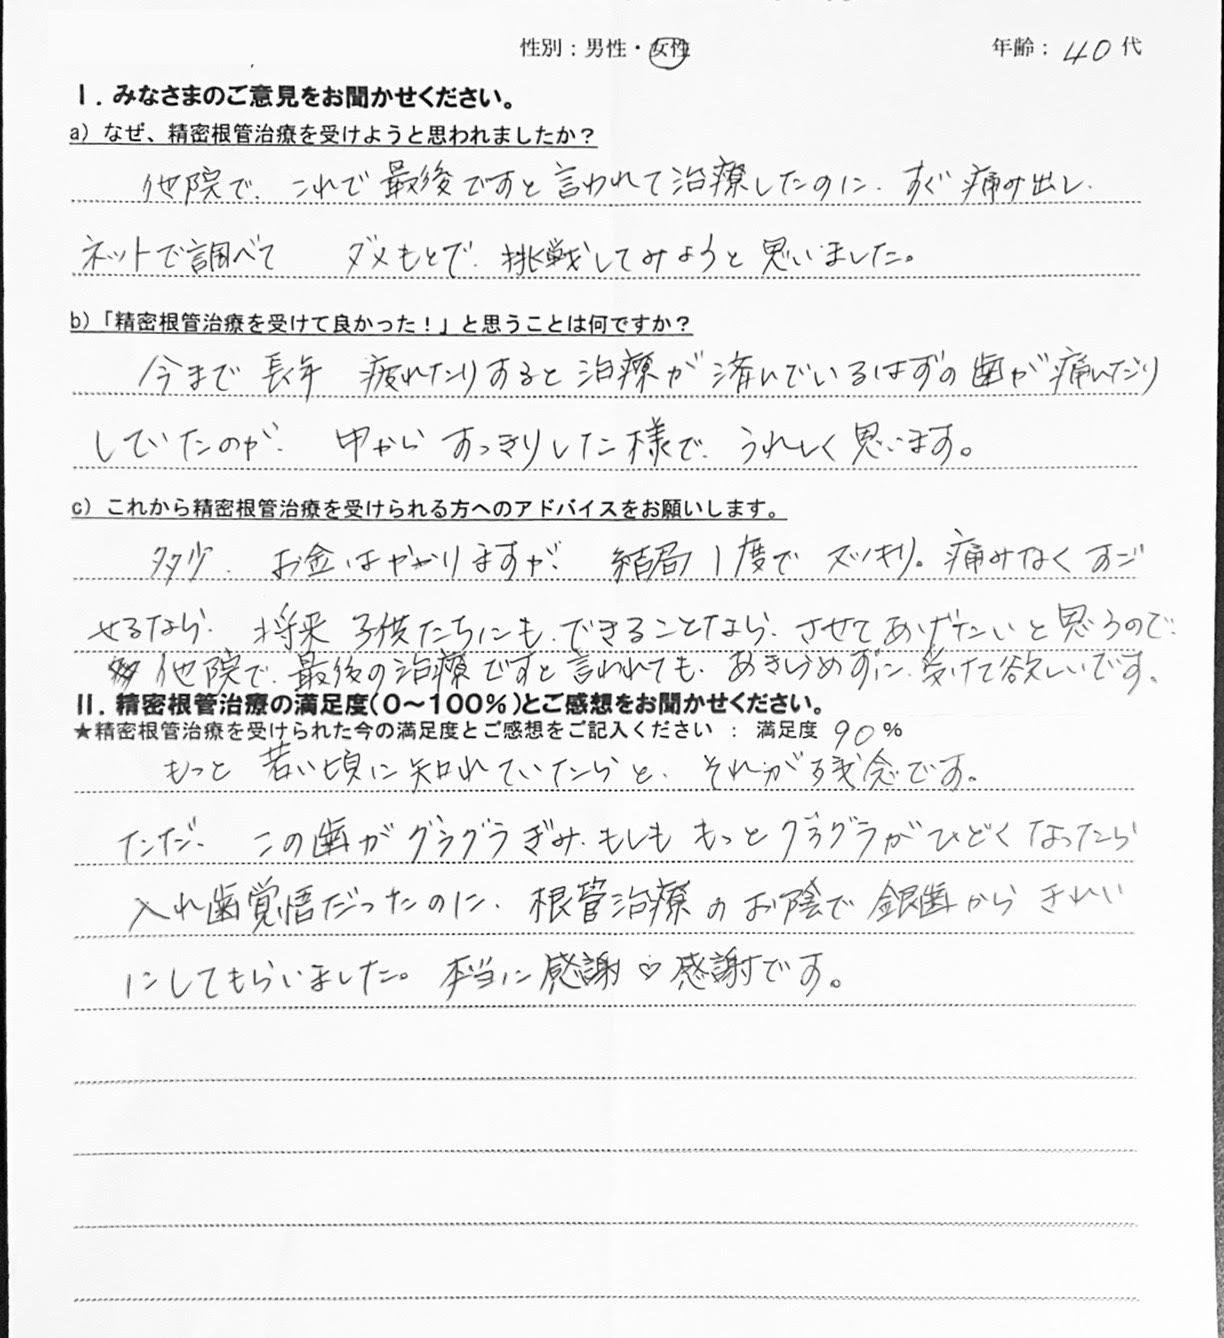 性別：男性・女性 年齢：40代
Ⅰ．みなさまのご意見をお聞かせください。
a）なぜ、精密根管治療を受けようと思われましたか？
他院で、これで最後ですと言われて治療したのに、すぐ痛み出し、
ネットで調べて ダメもとで、挑戦してみようと思いました。
b）「精密根管治療を受けて良かった！」と思うことは何ですか？
今まで長年 疲れたりすると治療が済んでいるはずの歯が痛んだり
していたのが、中からすっきりした様で、うれしく思います。
c）これから精密根管治療を受けられる方へのアドバイスをお願いします。
多少、お金はかかりますが、結局1度でスッキリ。痛みなくすご
せるなら、将来子供たちにも、できることなら、させてあげたいと思うので、
他院で、最後の治療ですと言われても、あきらめずに、受けて欲しいです。
Ⅱ．精密根管治療の満足度（0～100％）とご感想をお聞かせください。
★精密根管治療を受けられた今の満足度とご感想をご記入ください ： 満足度 90％
もっと若い頃に知れていたらと、それが残念です。
ただ、この歯がグラグラぎみ、もしももっとグラグラがひどくなったら
入れ歯覚悟だったのに、根管治療のお陰で銀歯からきれい
にしてもらいました。本当に感謝♡感謝です。